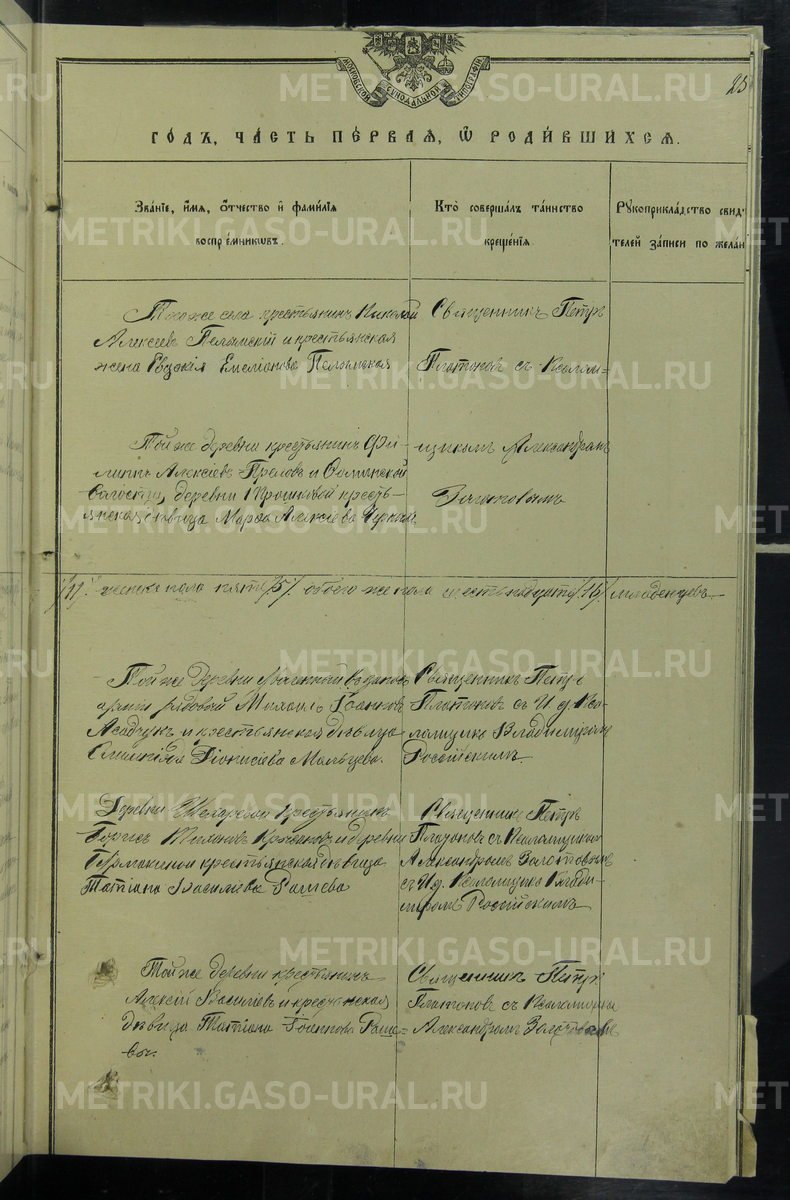 МОСКОВСКОЙ СѴНОДАЛЬНОЙ ТИПОГРАФІИ
25
ГОДЪ, ЧАСТЬ ПЕРВАЯ, Ѿ РОДИВШИХСЯ.
Званіе, имя, отчество и фамилія воспріемниковъ.
Кто совершалъ таинство крещенія
Рукоприкладство свидѣтелей записи по желан
Того же села крестьянинъ Николай
Алексѣев Пелымскій и крестьянская
жена Евдокія Емеліанова Пелымская
Священникъ Петръ
Платоновъ съ Псалом-
щикомъ Александром
Золотовымъ
Той же деревни крестьянинъ Фи-
липпъ Алексѣевъ и
волости, деревни кресть-
янская дѣвица Марѳа Алексѣева
женска пола пять /5/ обоего же пола шестьнадцать /16/ младенцевъ
Той же деревни
арміи рядовой Михаилъ Іоаннов
и крестьянская дѣвица
Діонисіева Мальцева.
Священникъ Петръ
Платоновъ съ И. д. Пса-
ломщика Владиміромъ
Россійскимъ.
Деревни крестьянинъ
Борисъ и деревни
Бурмакиной крестьянская дѣвица
Татіана Васильева Рашева
Священникъ Петръ
Платоновъ съ Псаломщикомъ
Александромъ Золотовымъ
съ И. д. Псаломщика Влади-
миромъ Россійскимъ
Той же деревни крестьянинъ
Алексій Васильевъ и крестьянская
дѣвица Татіана Іоаннова Раше-
вы.
Священникъ Петръ
Платоновъ съ Псаломщик
Александромъ Золотовым
METRIKI.GASO-URAL.RU